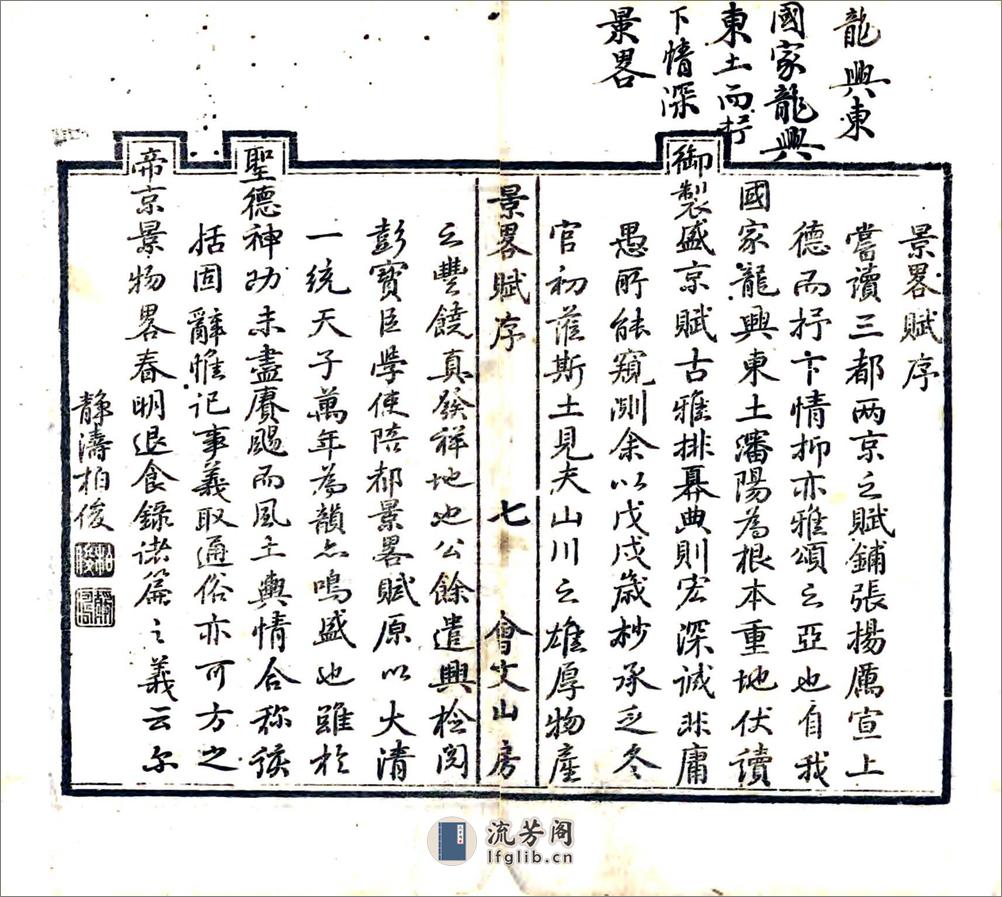 龍興東
國家龍興
東土而抒
下情深
景畧
景畧賦序
嘗讀三都两京之賦鋪張揚厲宣上
德而抒下情抑亦雅頌之亞也自我
國家龍興東土瀋陽為根本重地伏讀
御製盛京賦古雅排奡典則宏深誠非庸
愚所能窺測余以戊戌歲杪承乏冬
官初蒞斯土見夫山川之雄厚物產
景畧賦序 七 會文山房
之豐饒真發祥地也公餘遣興檢閱
彭寶臣學使陪都景畧賦原以大清
一統天子萬年為韻亦鳴盛也雖於
聖德神功未盡賡颺而風土輿情合称該
括固辭惟記事義取通俗亦可方之
帝京景物畧春明退食錄諸篇之義云尔
静濤柏俊
流芳阁
lfglib.cn